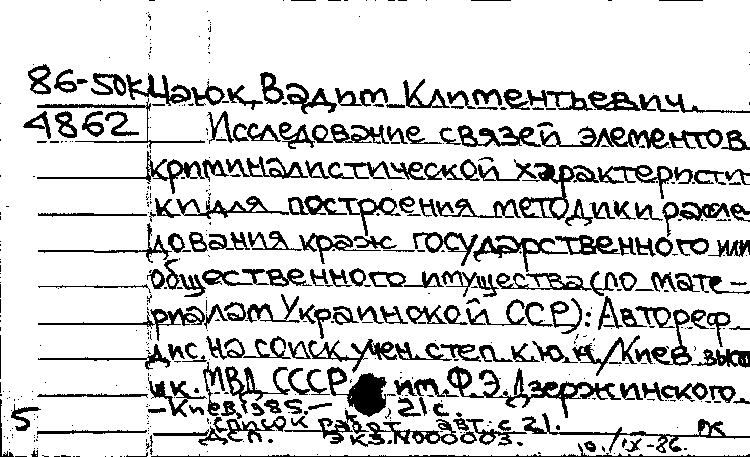 86-50к Цаюк, Вадим Климентьевич.
4862 Исследование связей элементов
криминалистической характеристи
ки для построения методики рассле
дования краж государственного или
общественного имущества (по мате-
риалам Украинской ССР): Автореф
дис. на соиск учен. степ к.ю.н. / Киев высш
шк. МВД СССР им. Ф.Э. Дзержинского.
—Киев, 1985.— 21 с.
5 Список работ авт.: с 21.
ДСП. Экз. N000003. РЖ
10./IX-86.